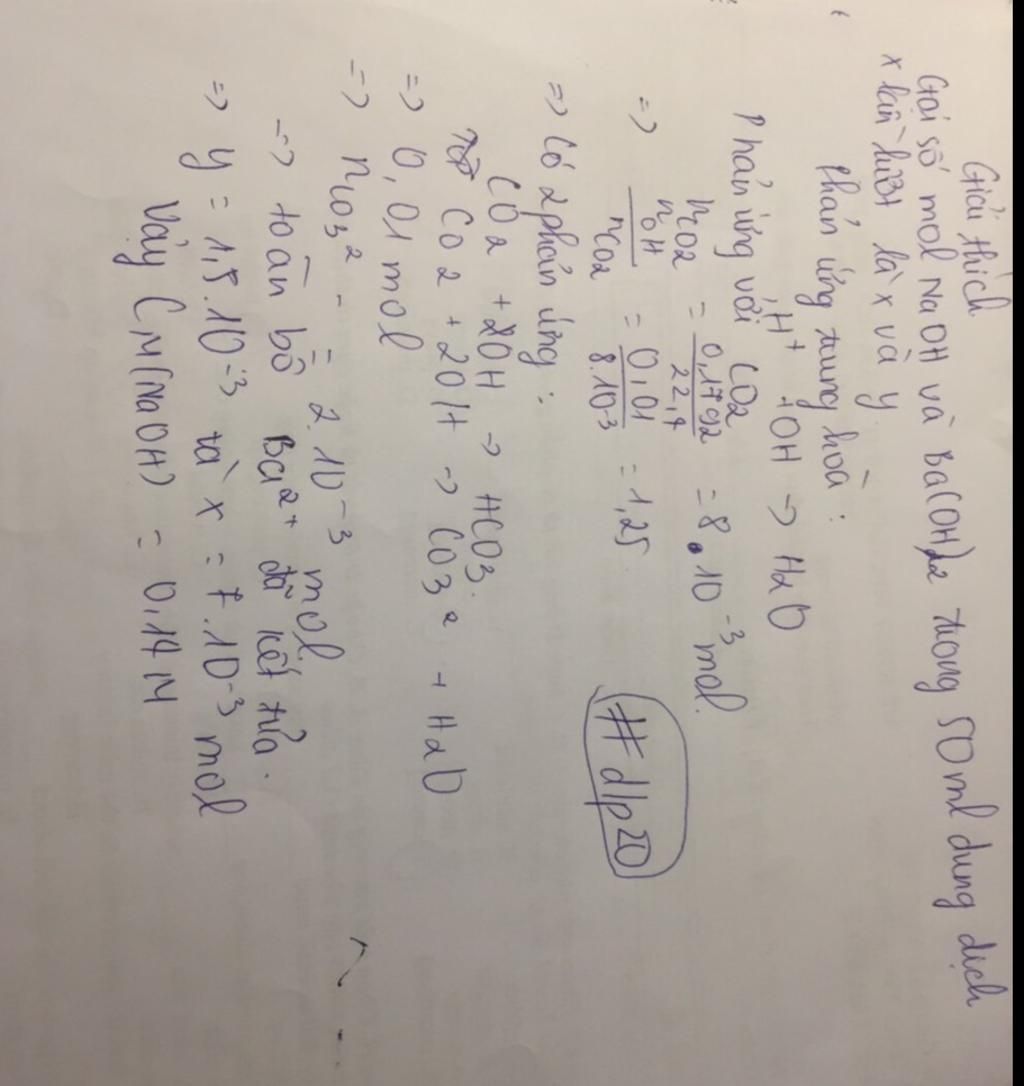 Giải thích
Gọi số mol NaOH và Ba(OH)2 trong 50ml dung dịch
x lần lượt là x và y
Phản ứng trung hoà :
H+ + OH → H2O
Phản ứng với CO2
nCO2 = 0,1792 / 22,4 = 8.10-3 mol.
=> nOH / nCO2 = 0,01 / 8.10-3 = 1,25
#dlp20
=> Có 2 phản ứng :
CO2 + OH → HCO3-
CO2 + 2OH → CO3 2 + H2O
=> 0,01 mol
=> nCO3 2- = 2.10-3 mol
-> toàn bộ Ba2+ đã kết tủa.
=> y = 1,5.10-3 và x = 7.10-3 mol
Vậy CM(NaOH) = 0,14M